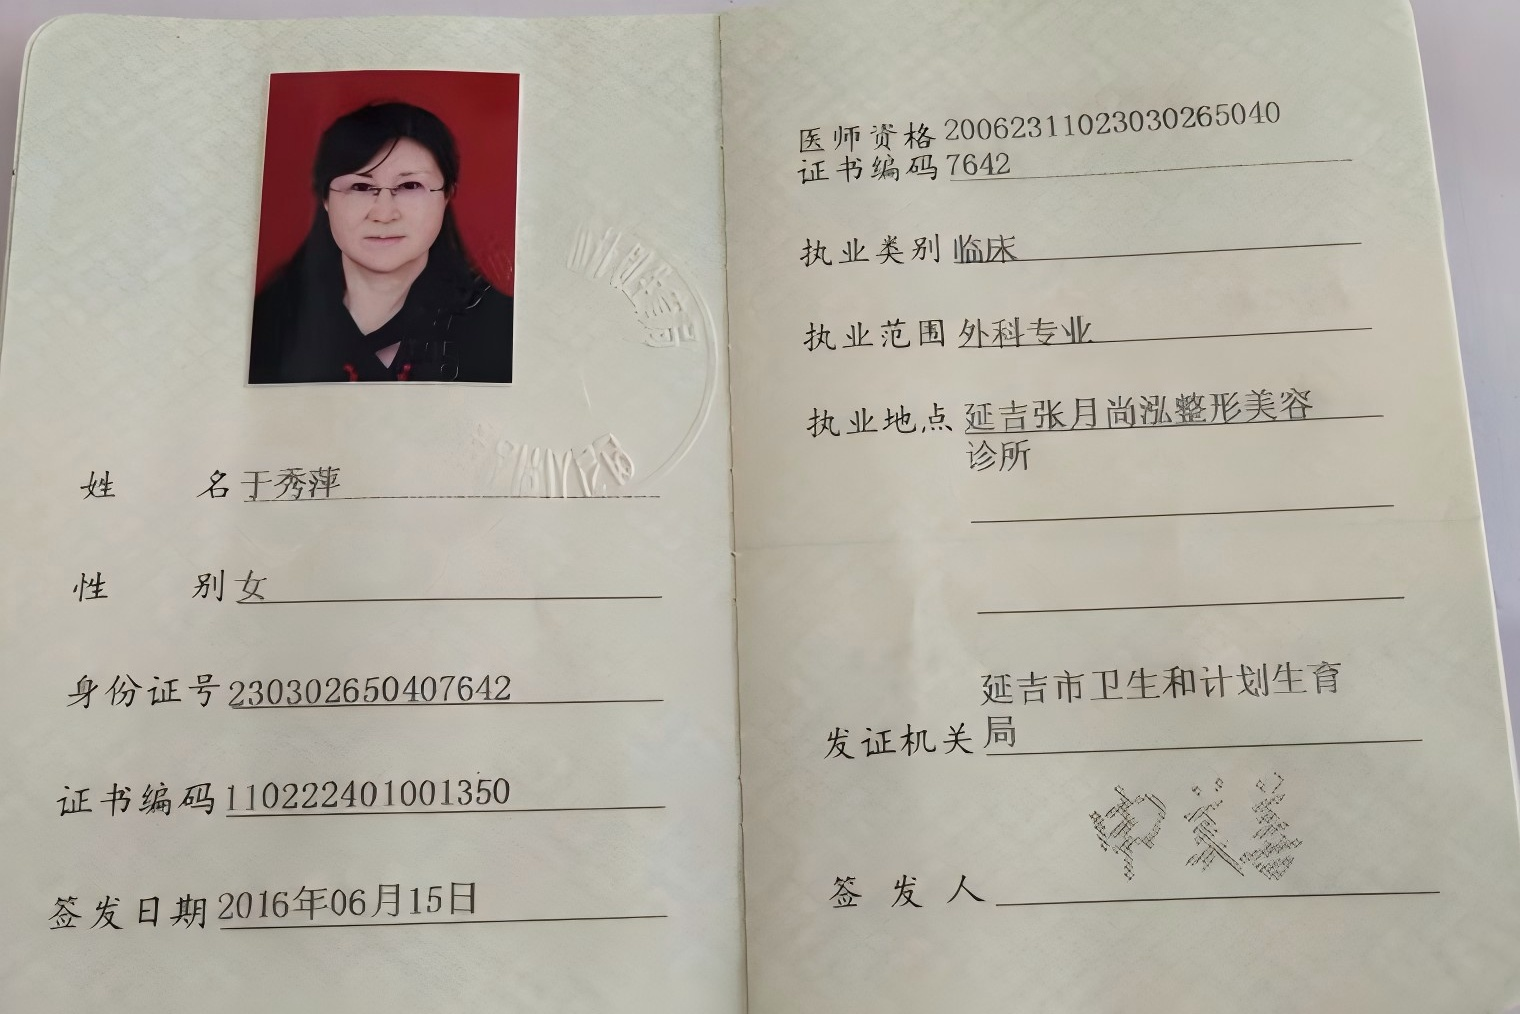 姓 名 于秀萍
性 别 女
身份证号 230302650407642
证书编码 110222401001350
签发日期 2016年06月15日
医师资格 20062311023030265040
证书编码 7642
执业类别 临床
执业范围 外科专业
执业地点 延吉张月尚泓整形美容
诊所
延吉市卫生和计划生育
发证机关 局
签 发 人